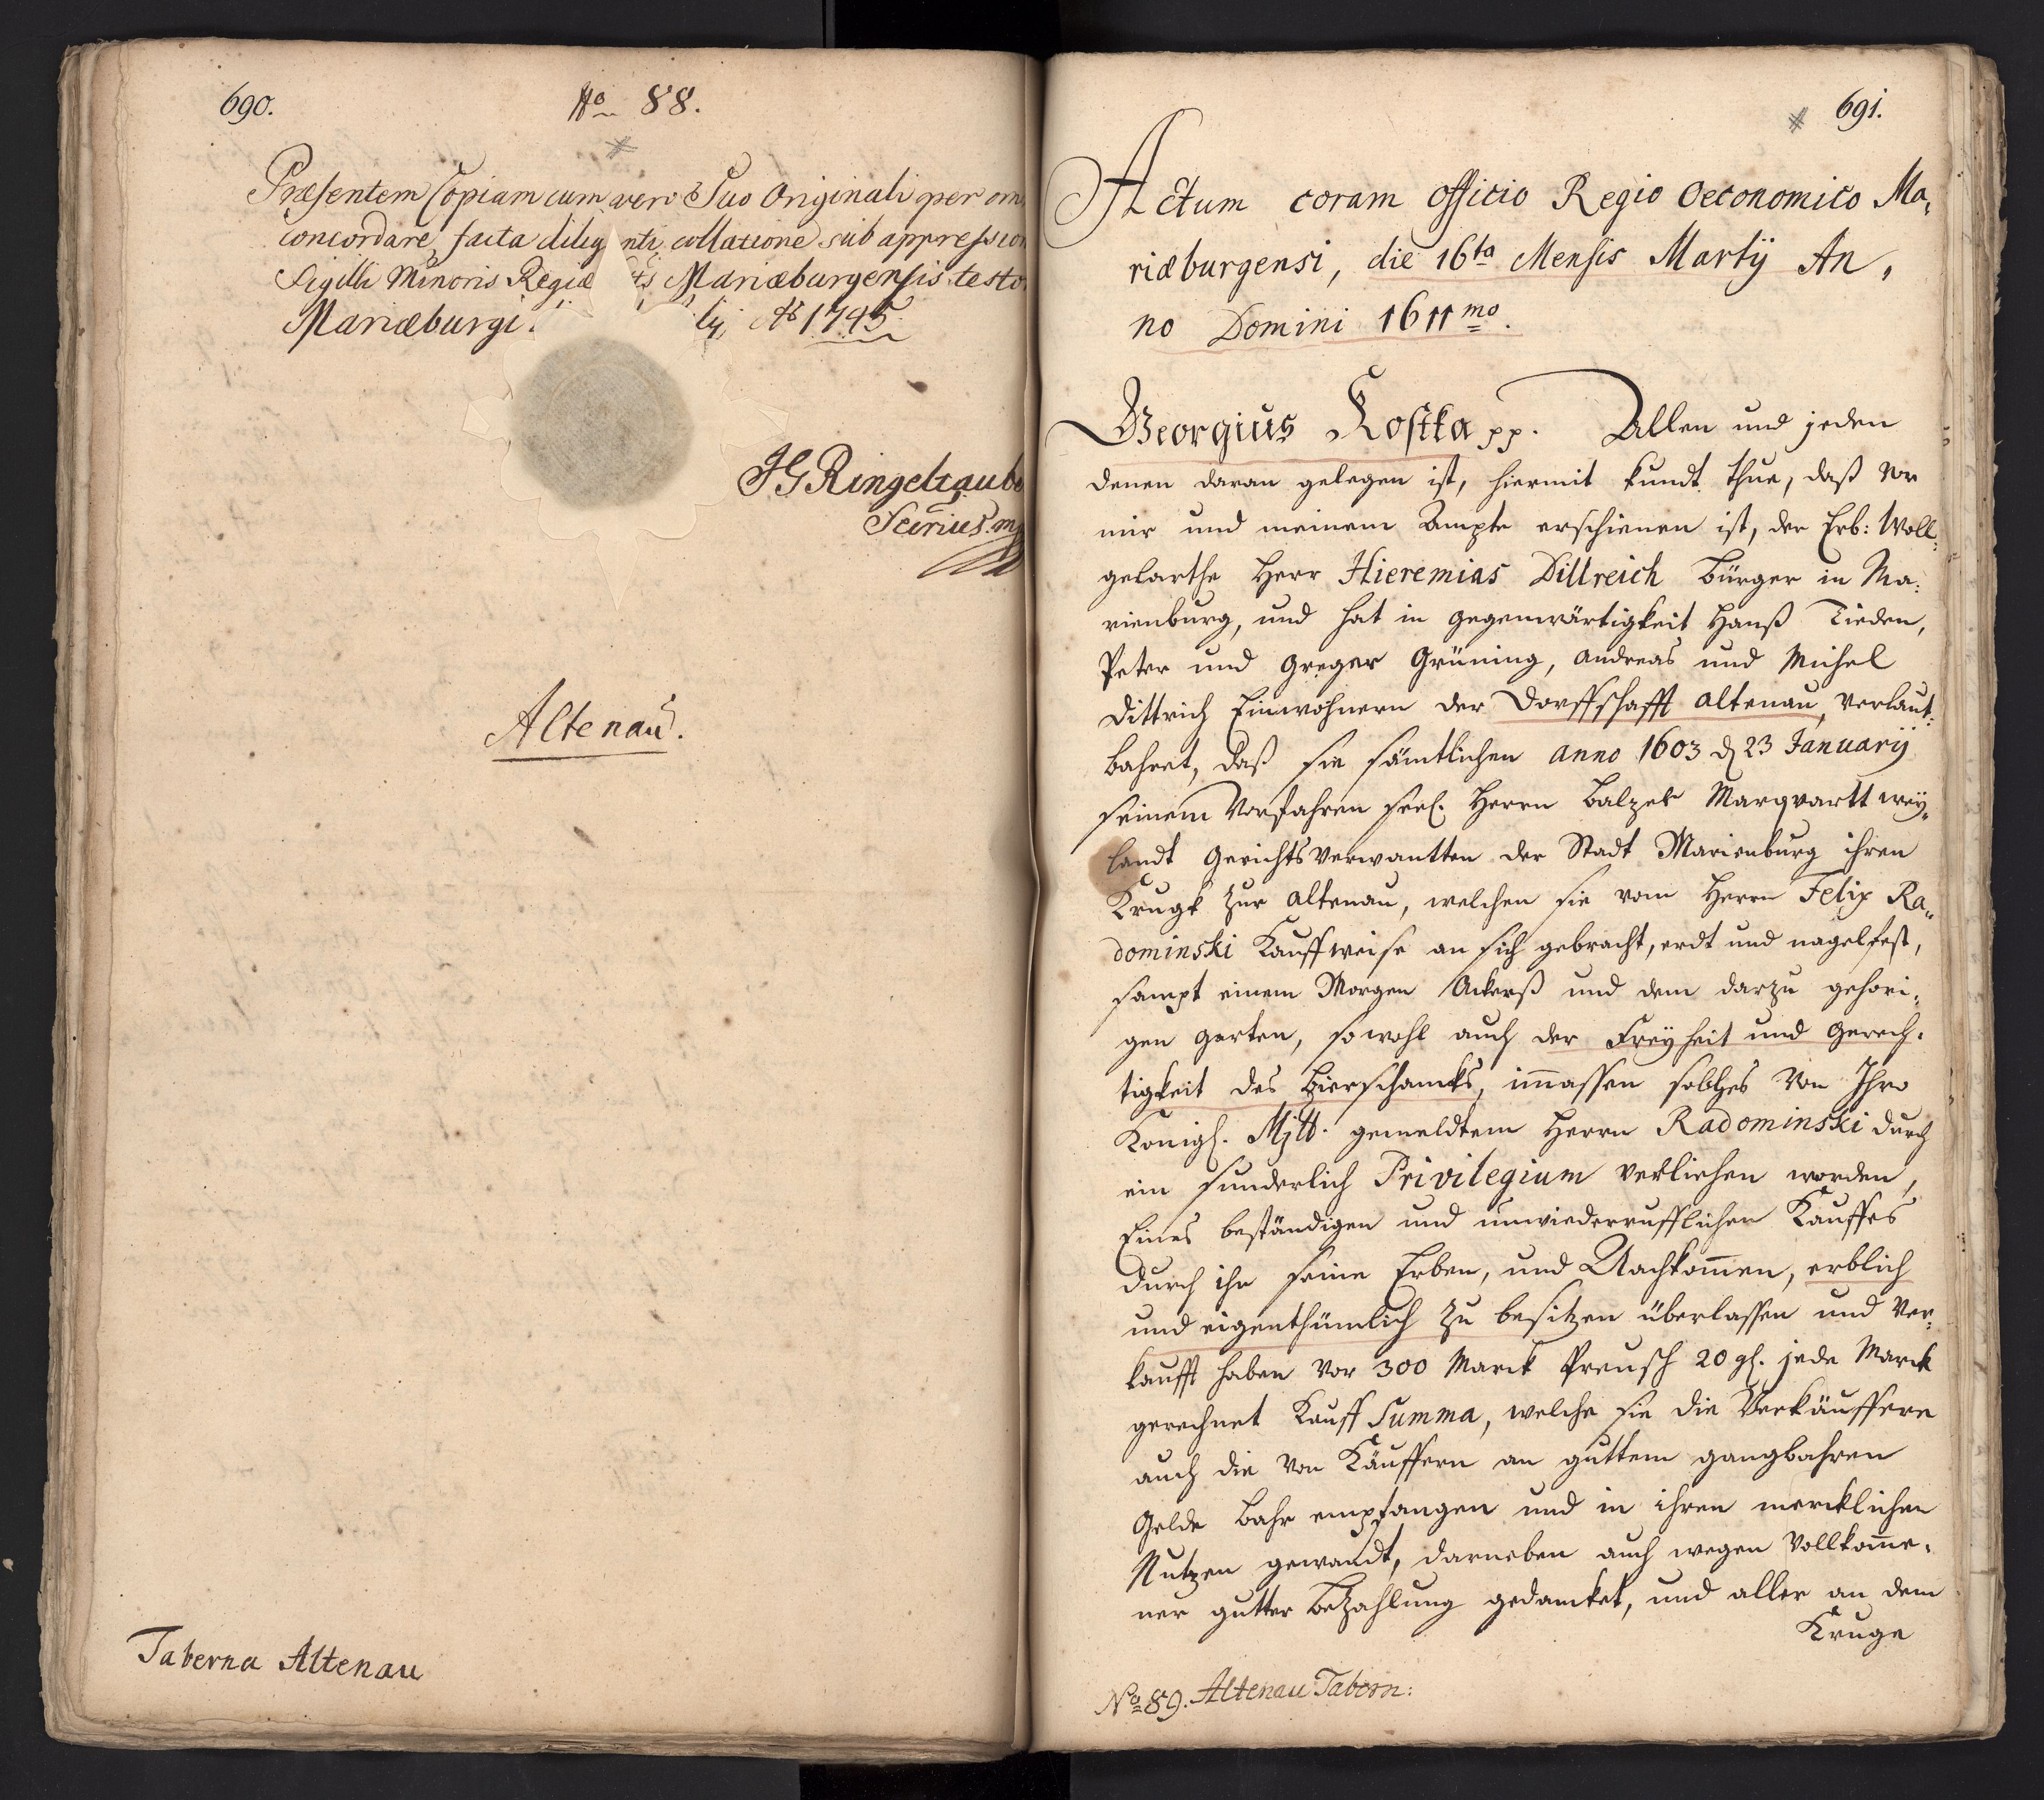 690.
No 88.
Præsentem Copiam cum vero Suo Originali per om
concordare, facta dilig nti collatione sub appression
Sigilli Minoris Regiæ ts Mariæburgensis testo
Mariæburgi. ly Ao 1745.
JGRingeltaube
Scirius. m
Altenau.
Taberna Altenau
691.
Actum coram Officio Regio Oeconomico Ma,
riæburgensi, die 16ta Mensis Martÿ An,
no Domini 1611mo.
Georgius Kostka pp. Allen und jeden
denen daran gelegen ist, hiermit kundt thue, daß vor
mir und meinem Ampte erschienen ist, der Erb: Woll:
gelarthe Herr Hieremias Dillreich Bürger in Ma:
rienburg, und hat in gegenwärtigkeit Hanß Tieden,
Peter und Greger Grüning, Andreas und Michel
Dittrich Einwohnern der Dorffschafft Altenau, verlaut:
bahret, daß sie sämtlichen anno 1603 d 23 Januarÿ
seinem Vorfahren seel. Herrn Balzer Marqvartt weÿ,
landt Gerichtsverwantten der Stadt Marienburg ihren
Krugk zur Altenau, welchen sie vom Herrn Felix Ra,,
dominski Kauffweise an sich gebracht, erdt und nagelfest,
sampt einem Morgen Ackerß und dem darzu gehöri,
gen garten, so wohl auch der Freÿheit und Gerech,
tigkeit des Bierschancks, im̄assen solches von Ihro
Königl. Mjtt. gemeldtem Herrn Radominski durch
ein sunderlich Privilegium verliehen worden,
Eines beständigen und unwiederrufflichen Kauffes
durch ihn seine Erben, und Nachkom̄en, erblich
und eigenthümlich zu besitzen überlassen und Ver,
kaufft haben vor 300 Marck Preusch 20 gl. jede Marck
gerechnet Kauff Summa, welche sie die Verkäuffere
auch die von Käuffern an guttem gangbahren
Gelde bahr empfangen und in ihren mercklichen
Nutzen gewandt, darneben auch wegen vollkom̄e,
ner gutter Bezahlung gedancket, und aller an dem
Kruge
No 89. Altenau Tabern: